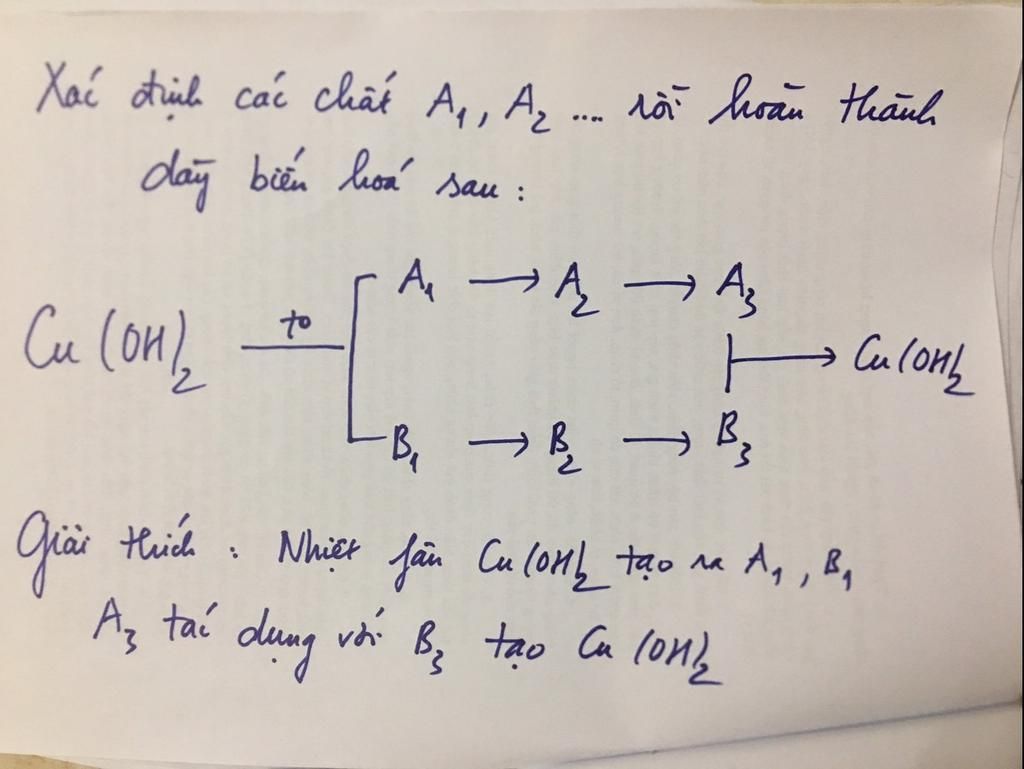 Xác định các chất A1, A2 .... rồi hoàn thành
dãy biến hoá sau :
A1 → A2 → A3
Cu(OH)2 t° → Cu(OH)2
B1 → B2 → B3
Giải thích : Nhiệt fân Cu(OH)2 tạo ra A1, B1
A3 tác dụng với B3 tạo Cu(OH)2